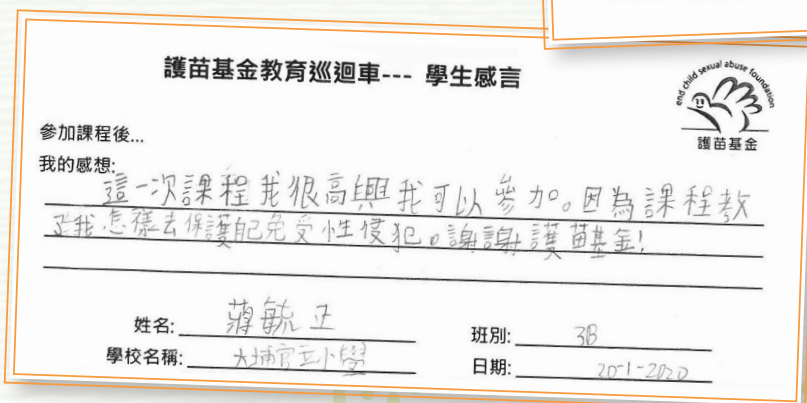 護苗基金教育巡迴車--- 學生感言
end child sexual abuse foundation
護苗基金
參加課程後...
我的感想:
這一次課程我很高興我可以參加。因為課程教
我怎樣去保護自己免受性侵犯。謝謝護苗基金!
姓名: 蔣毓正
班別: 3B
學校名稱: 大埔官立小學
日期: 20-1-2020